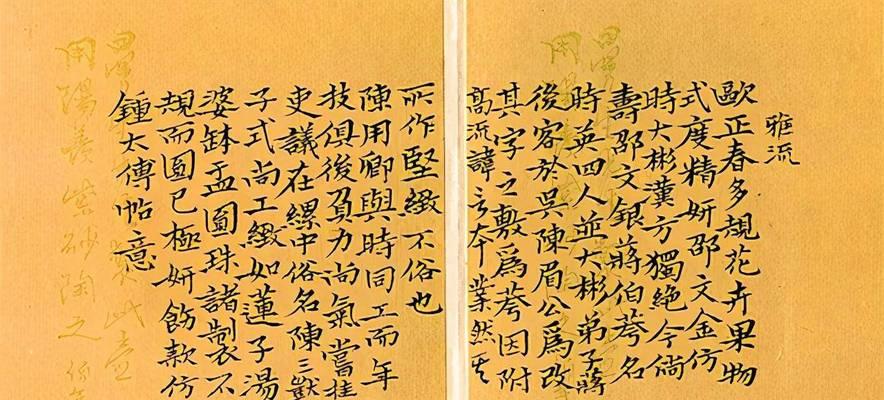 雅流
歐正春多規花卉果物
式度精妍邵文金仿
時大彬漢方獨絶今倘
壽邵文銀蔣伯荂名
時英四人並大彬弟子蔣
後客於吳陳眉公為改
其字之敷為荂因附
高流諱言本業然其
所作堅緻不俗也
陳用卿與時同工而年
技俱後負力尚氣嘗挂
吏議在縲中俗名陳三獃
子式尚工緻如蓮子湯
婆缽盂圓珠諸製不
規而圓已極妍飭款仿
鍾太傅帖意
用陽羨紫砂陶之